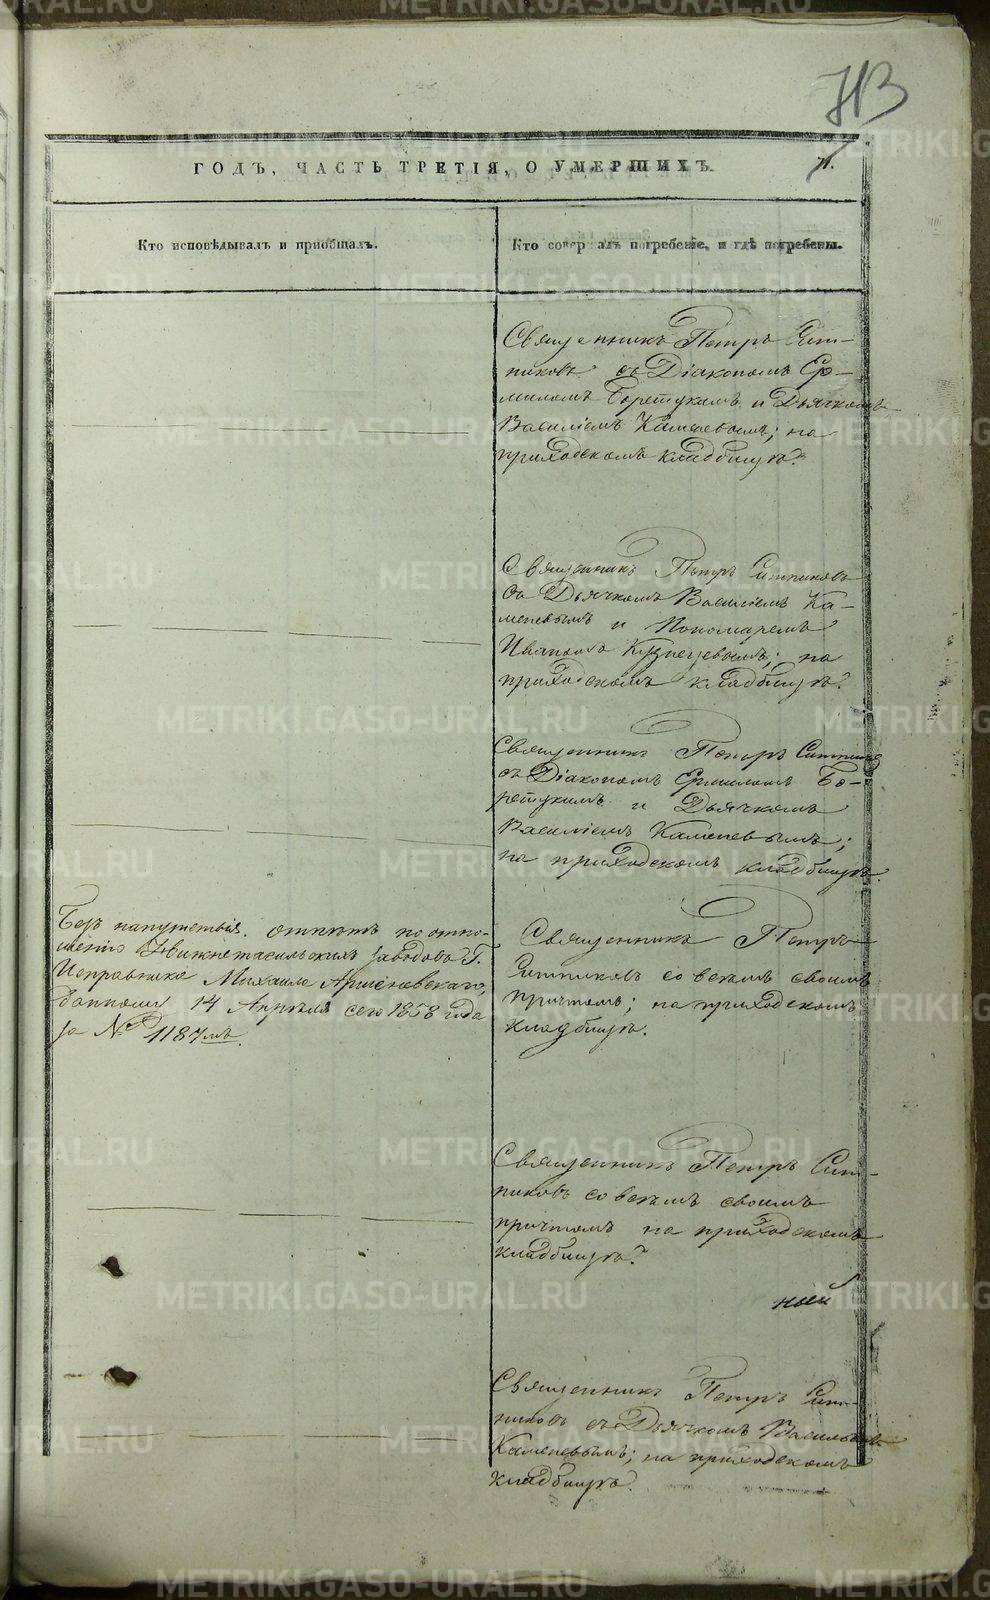 METRIKI.GASO-URAL.RU
713
71.
ГОДЪ, ЧАСТЬ ТРЕТІЯ, О УМЕРШИХЪ.
Кто исповѣдывалъ и пріобщалъ.
Кто совер алъ погребеніе, и гдѣ погребены.
Священникъ Петръ Сит-
никовъ съ Діакономъ Ер-
миломъ Борецкимъ и Дьячкомъ
Василіемъ Каменевымъ; на
приходскомъ кладбищѣ.
Священникъ Петръ Ситниковъ
съ Дьячкомъ Василіемъ Ка-
меневымъ и Пономаремъ
Иваномъ Кузнецовымъ; на
приходскомъ кладбищѣ.
Священникъ Петръ Ситников
съ Діакономъ Ермиломъ Бо-
рецкимъ и Дьячкомъ
Василіемъ Каменевымъ;
на приходскомъ кладбищѣ.
Безъ напутствія. отпѣтъ по отно-
шенію Нижнетагильскихъ заводовъ Г.
Исправника Михаила
14 Апрѣля сего 1858 года
за № 1187мъ.
Священникъ Петръ
Ситниковъ со всѣмъ своимъ
причтомъ; на приходскомъ
кладбищѣ.
Священникъ Петръ Сит-
никовъ со всѣмъ своимъ
причтомъ на приходскомъ
кладбищѣ.
ный
Священникъ Петръ Сит-
никовъ съ Дьячкомъ Василіемъ
Каменевымъ; на приходскомъ
кладбищѣ.